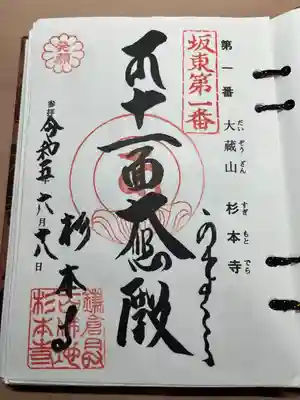 第一番
大蔵山 杉本寺
だいぞうざん すぎもとでら
坂東第一番
かまくら
十一面大悲殿
発願
杉本寺
参拝
令和五
月 日
鎌倉最古佛地
杉本寺